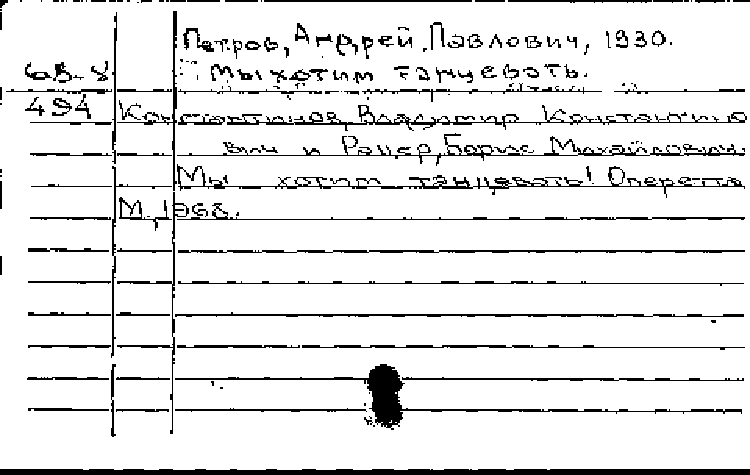 Петров, Андрей Павлович, 1930.
68-8 Мы хотим танцевать.
494 Константинов, Владимир Константино
вич и Рацер, Борис Михайлович.
Мы хотим танцевать! Оперетта
М., 1968.